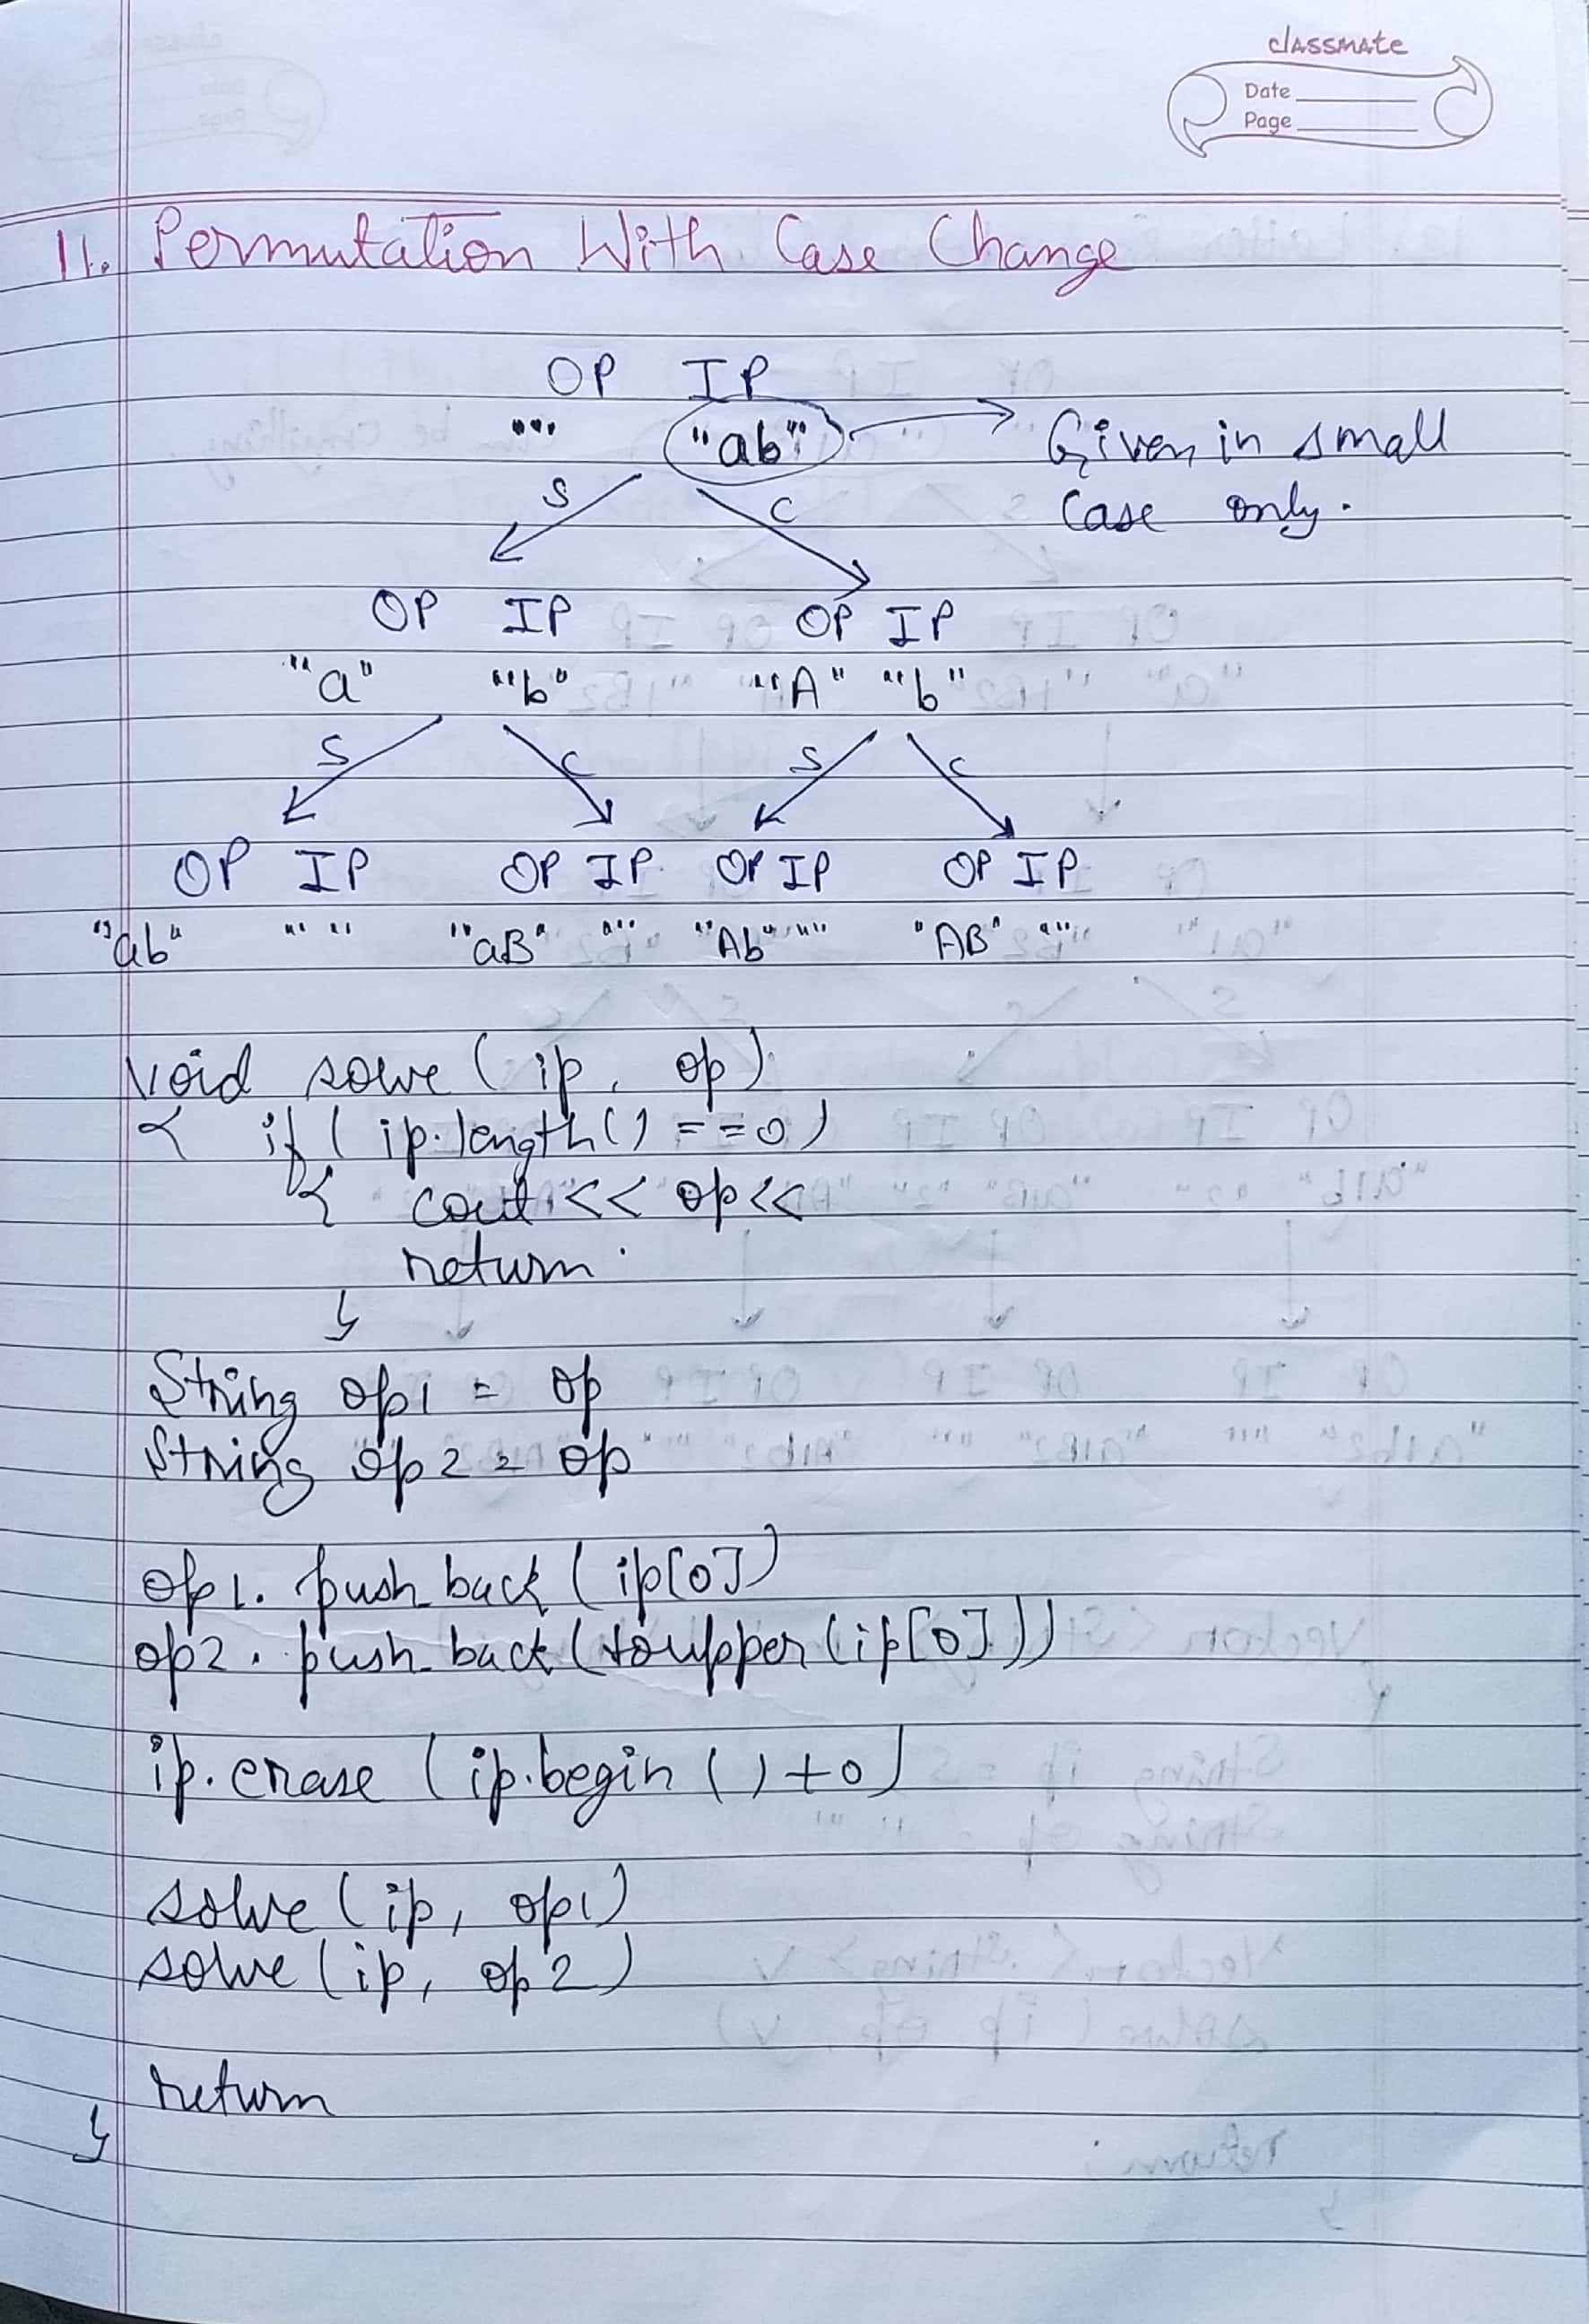 classmate
Date
Page
11. Permutation With Case Change
OP IP
"" "ab" Given in small
Case only.
S C
OP IP OP IP
"a" "b" "A" "b"
S C S C
OP IP OP IP OP IP OP IP
"ab" "" "aB" "" "Ab" "" "AB" ""
void solve (ip, op)
{ if (ip.length() == 0)
{ cout << op <<
return.
}
String op1 = op
String op2 = op
op1. push_back (ip[0])
op2. push_back (toupper (ip[0]))
ip. erase (ip.begin () + 0)
solve (ip, op1)
solve (ip, op2)
return
}